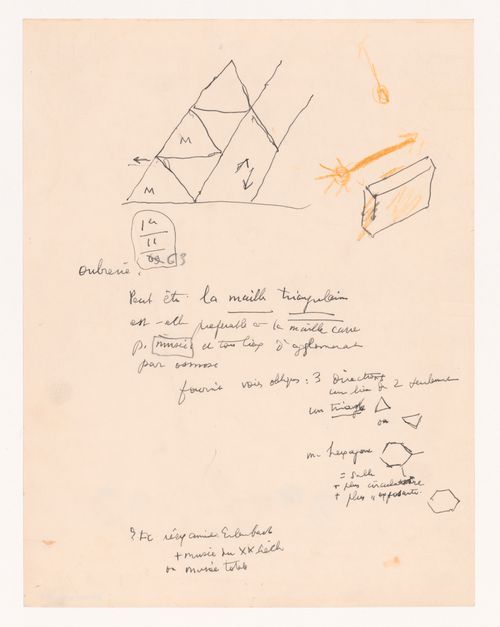 M
M
1er
11
63
Peut être la maille triangulaire
est-elle préférable à la maille carré
p. musée et tous lieux d'agglomerat
par osmose
fournit voies obliques : 3 directions
au lieu de 2 seulement
un triangle
ou
m hexagone
= salle
+ plus circulatoire
+ plus
Etc
+ musée du XX siècle
ou musée total